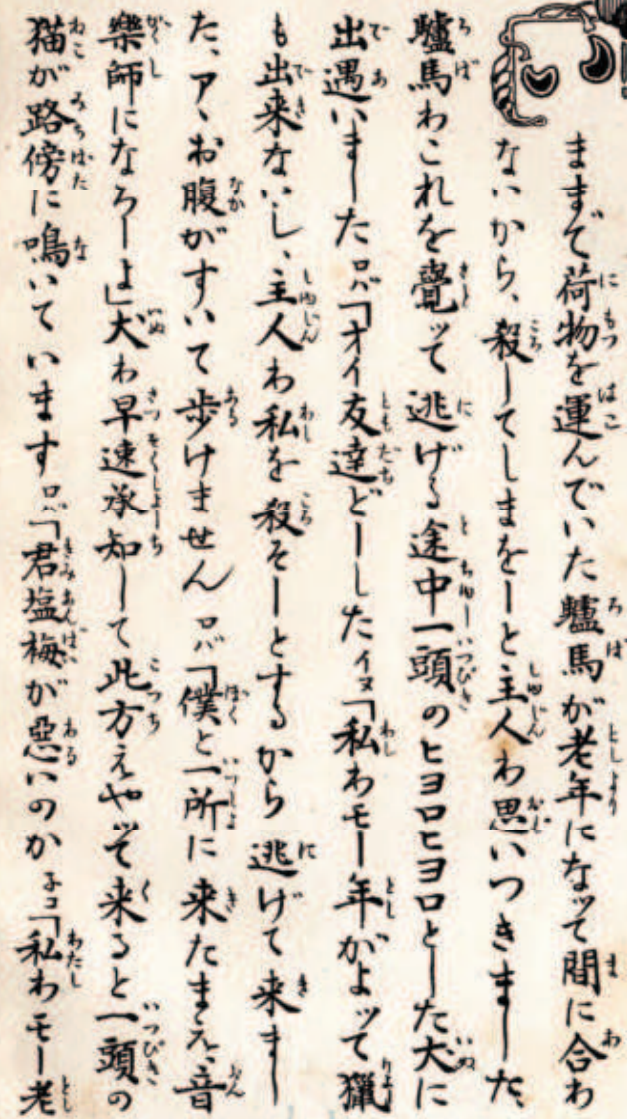 ままで荷物を運んでいた驢馬が老年になッて間に合わ
ないから、殺してしまをーと主人わ思いつきました、
驢馬わこれを覺ッて逃げる途中一頭のヒヨロヒヨロとした犬に
出遇いました ロバ「オイ友達どーした イヌ「私わモー年がよッて獵
も出来ないし、主人わ私を殺そーとするから逃げて来まし
た、アヽお腹がすいて歩けません ロバ「僕と一所に来たまえ、音
樂師になろーよ」犬わ早速承知して此方えやッて来ると一頭の
猫が路傍に鳴いています ロバ「君塩梅が惡いのか ネコ「私わモー老